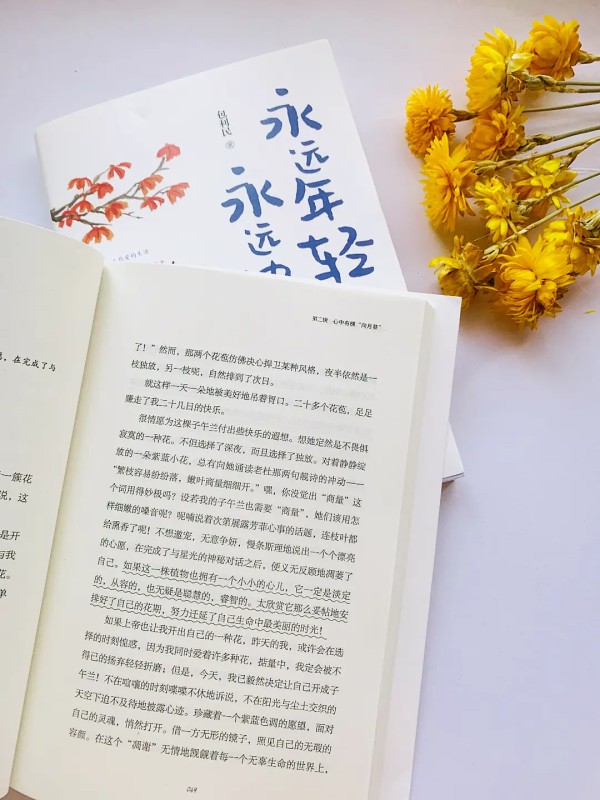 包利民 著
永远年轻
永远
第二辑 心中有棵“向月葵”
了！”然而，那两个花苞仿佛决心捍卫某种风格，夜半依然是一
枝独放，另一枝呢，自然排到了次日。
就这样一天一朵地被美好地吊着胃口。二十多个花苞，足足
赚走了我二十几日的快乐。
很情愿为这棵子午兰付出些快乐的遐想。想她定然是不畏惧
寂寞的一种花。不但选择了深夜，而且选择了独放。对着静静绽
放的一朵紫蓝小花，总有向她诵读老杜那两句靓诗的冲动——
“繁枝容易纷纷落，嫩叶商量细细开。”嘿，你没觉出“商量”这
个词用得妙极吗？设若我的子午兰也需要“商量”，她们该用怎
样细嫩的嗓音呢？呢喃说着次第展露芳菲心事的话题，连枝叶都
给熏香了呢！不想邀宠，无意争妍，慢条斯理地说出一个个漂亮
的心愿，在完成了与星光的神秘对话之后，便义无反顾地凋萎了
自己。如果这一株植物也拥有一个小小的心儿，它一定是淡定
的，从容的，也无疑是聪慧的，睿智的。太欣赏它那么妥帖地安
排好了自己的花期，努力迁延了自己生命中最美丽的时光！
如果上帝也让我开出自己的一种花，昨天的我，或许会在选
择的时刻惶惑，因为我同时爱着许多种花，掂量中，我定会被不
得已的扬弃轻轻折磨；但是，今天，我已毅然决定让自己开成子
午兰！不在喧嚷的时刻喋喋不休地诉说，不在阳光与尘土交织的
天空下迫不及待地披露心迹。珍藏着一个紫蓝色调的愿望，面对
自己的灵魂，悄然打开。借一方无形的镜子，照见自己的无瑕的
容颜。在这个“凋谢”无情地觊觎着每一个无辜生命的世界上，
069
，在完成了与
一簇花
说，这
是开
与我
花。
单